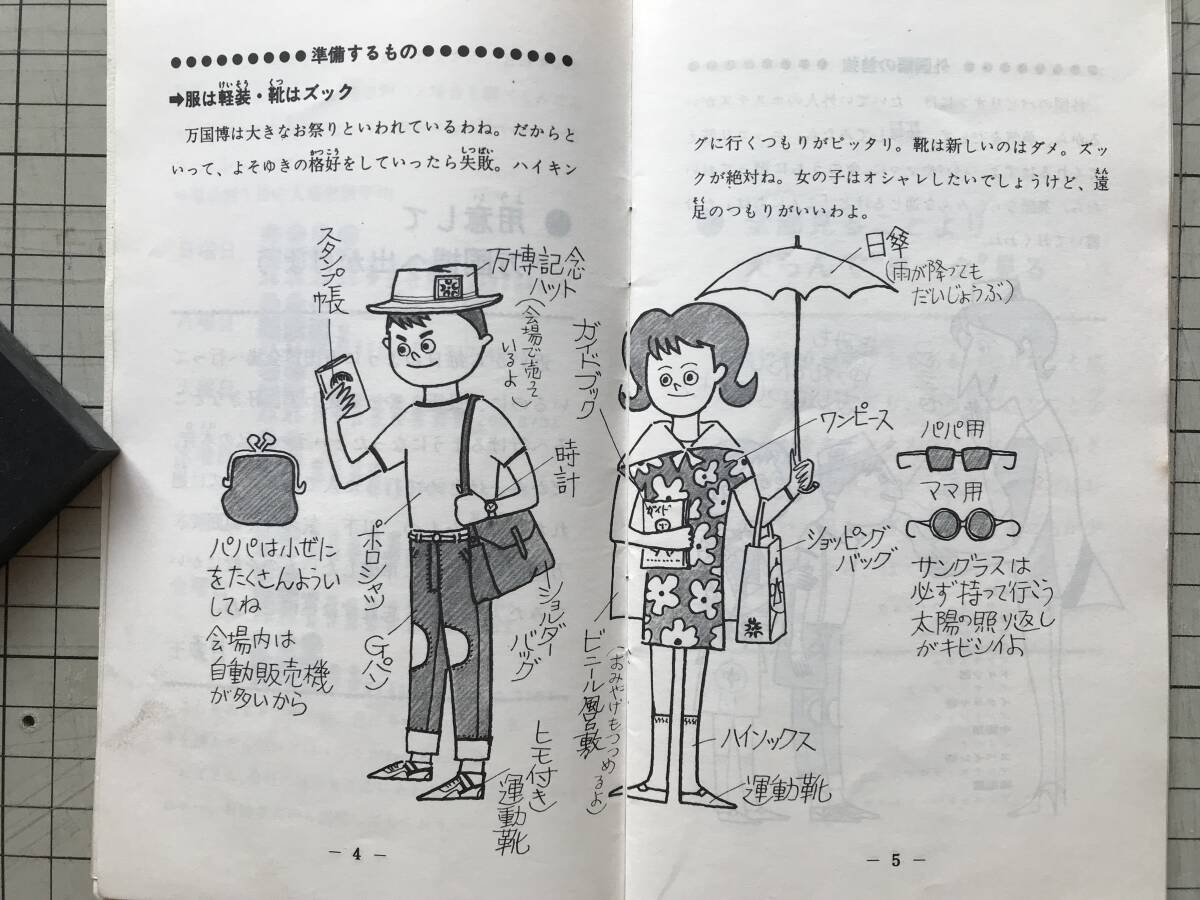 準備するもの
➡服は軽装・靴はズック
けいそう
くつ
万国博は大きなお祭りといわれているわね。だからと
いって、よそゆきの格好をしていったら失敗。ハイキン
かっこう
しっぱい
スタンプ帳
万博記念
ハット
(会場で売って
いるよ)
時計
ポロシャツ
Gパン
ショルダー
バッグ
ヒモ付き
運動靴
パパは小ぜに
をたくさんようい
してね
会場内は
自動販売機
が多いから
— 4 —
グに行くつもりがピッタリ。靴は新しいのはダメ。ズッ
クが絶対ね。女の子はオシャレしたいでしょうけど、遠
足のつもりがいいわよ。
えん
そく
日傘
(雨が降っても
だいじょうぶ)
ガイドブック
ガイド
ワンピース
ショッピング
バッグ
ビニール風呂敷
(おみやげもつつめるよ)
ハイソックス
運動靴
パパ用
ママ用
サングラスは
必ず持って行こう
太陽の照り返し
がキビシイよ
— 5 —